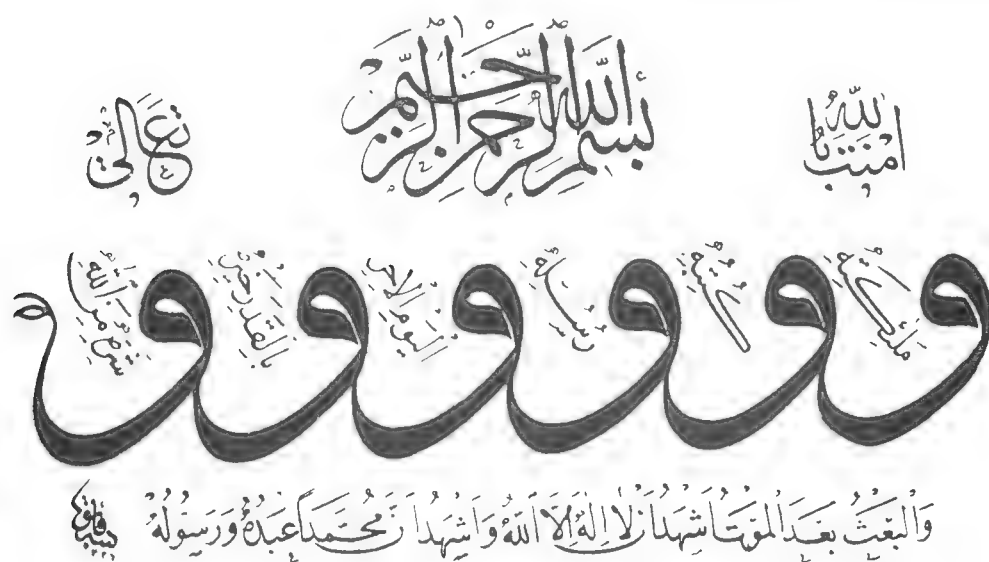 بسم الله الرحمن الرحيم
امنت بالله
تعالى
و ملئكته و كتبه و رسله و اليوم الاخر و بالقدر خيره و شره من الله
وَالْبَعْثُ بَعْدَ الْمَوْتِ اَشْهَدُ اَنْ لَا اِلٰهَ اِلَّا اللّٰهُ وَاَشْهَدُ اَنَّ مُحَمَّدًا عَبْدُهُ وَرَسُولُهُ